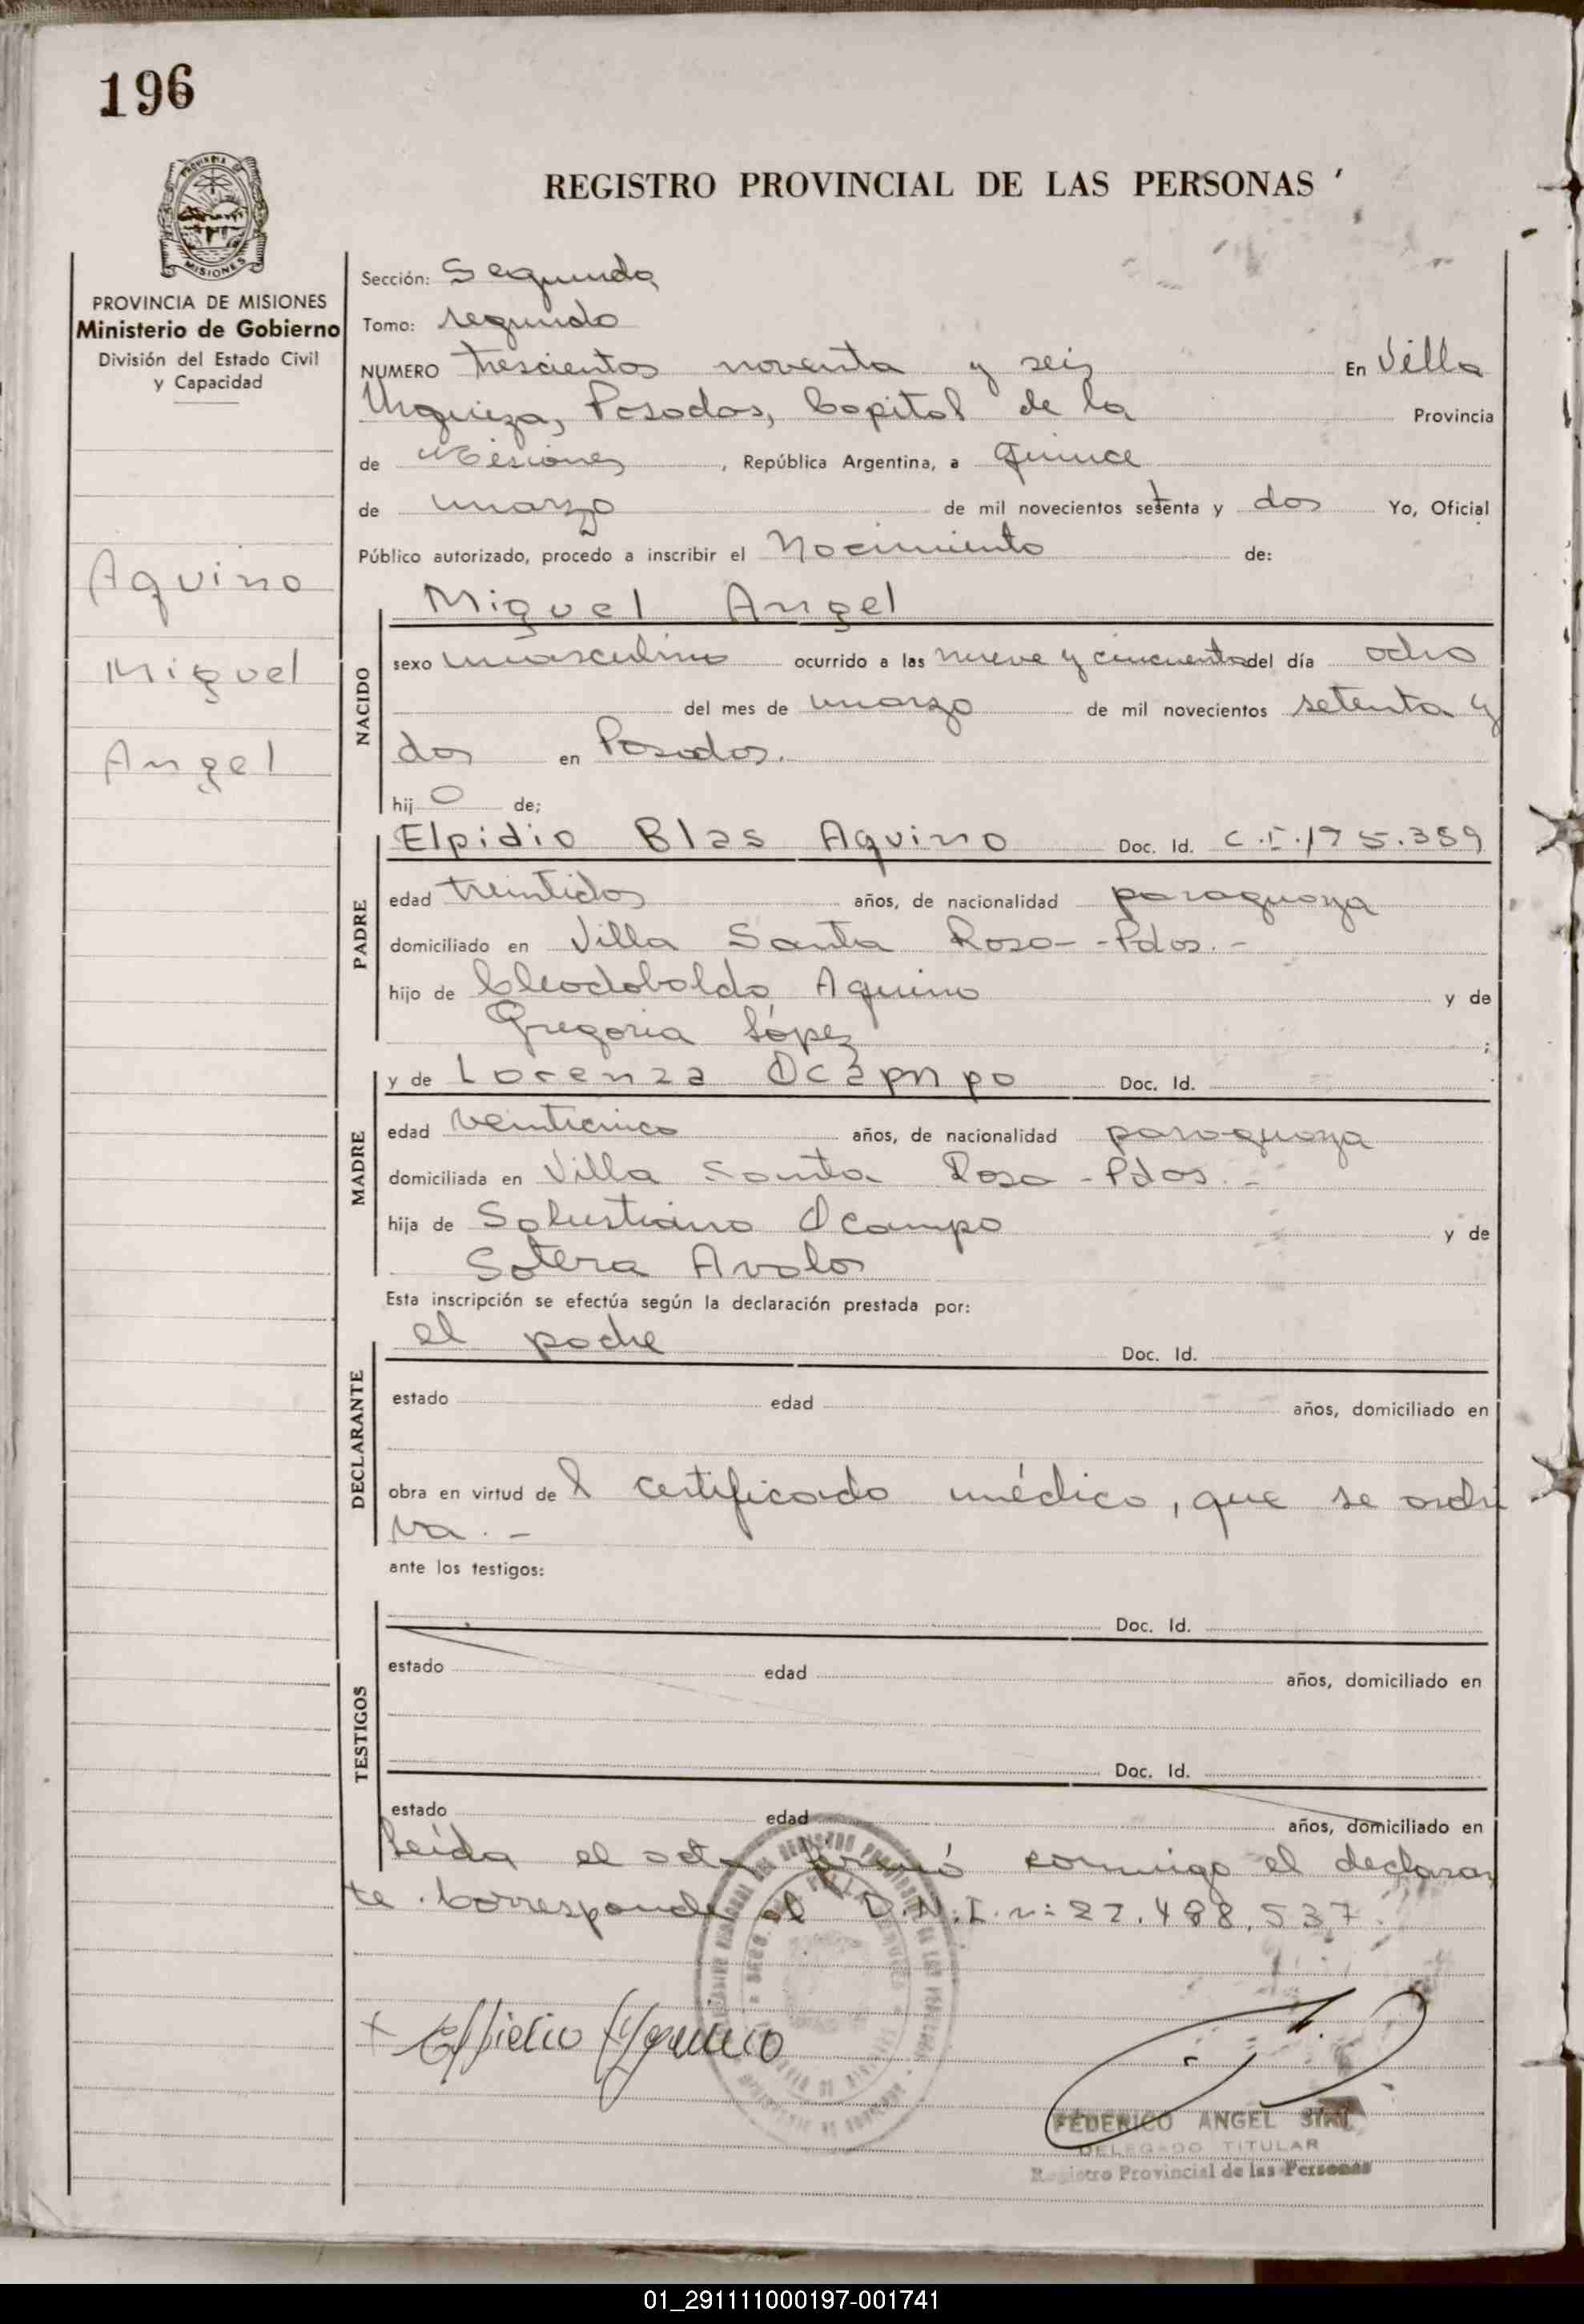 196
PROVINCIA DE
MISIONES
REGISTRO PROVINCIAL DE LAS PERSONAS
PROVINCIA DE MISIONES
Ministerio de Gobierno
División del Estado Civil
y Capacidad
Aquino
Miguel
Angel
Sección: Segunda
Tomo: segundo
NUMERO trescientos noventa y seis En Villa
Urquiza, Posadas, Capital de la Provincia
de Misiones, República Argentina, a quince
de marzo de mil novecientos setenta y dos Yo, Oficial
Público autorizado, procedo a inscribir el Nacimiento de:
NACIDO
Miguel Angel
sexo masculino ocurrido a las nueve y cincuenta del día ocho
del mes de marzo de mil novecientos setenta y
dos en Posadas.
hij o de;
PADRE
Elpidio Blas Aquino Doc. Id. C.I. 195.359
edad treintidos años, de nacionalidad paraguaya
domiciliado en Villa Santa Rosa - Pdas. -
hijo de Cleodobaldo Aquino y de
Gregoria López ;
MADRE
y de Lorenza Ocampo Doc. Id.
edad veinticinco años, de nacionalidad paraguaya
domiciliada en Villa Santa Rosa - Pdas. -
hija de Salustiano Ocampo y de
Sotera Avalos
Esta inscripción se efectúa según la declaración prestada por:
DECLARANTE
el padre Doc. Id.
estado edad años, domiciliado en
obra en virtud de l certificado médico, que se archi
va. -
ante los testigos:
TESTIGOS
Doc. Id.
estado edad años, domiciliado en
Doc. Id.
estado edad años, domiciliado en
Leída el acta firmó conmigo el declaran
te. Corresponde al D.N.I. n: 22.488.537.
+ Elpidio Aquino
FEDERICO ANGEL
DELEGADO TITULAR
Registro Provincial de las Personas
01_291111000197-001741